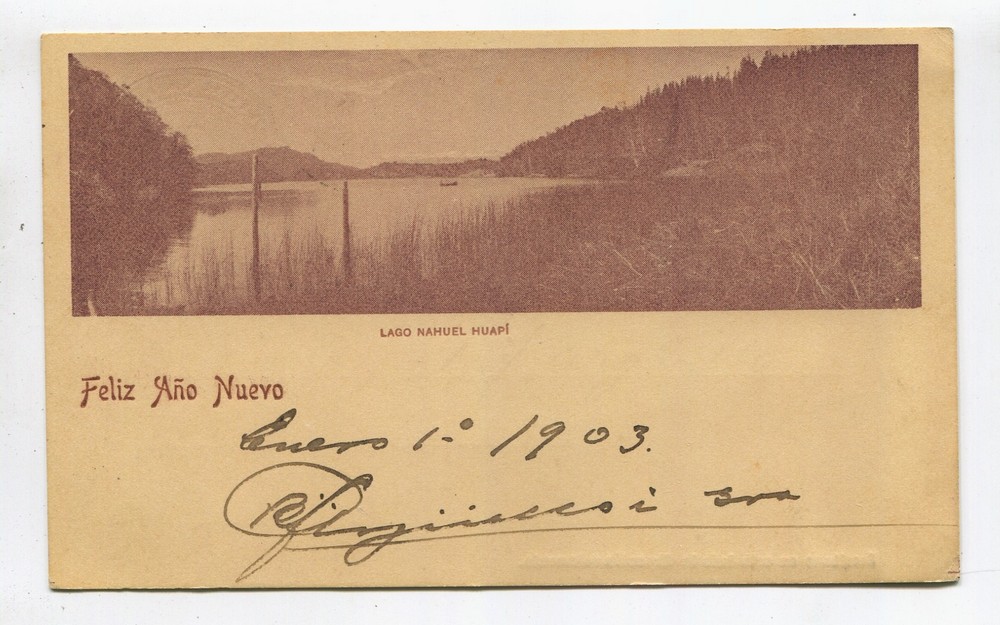 LAGO NAHUEL HUAPÍ
Feliz Año Nuevo
Enero 1º 1903.